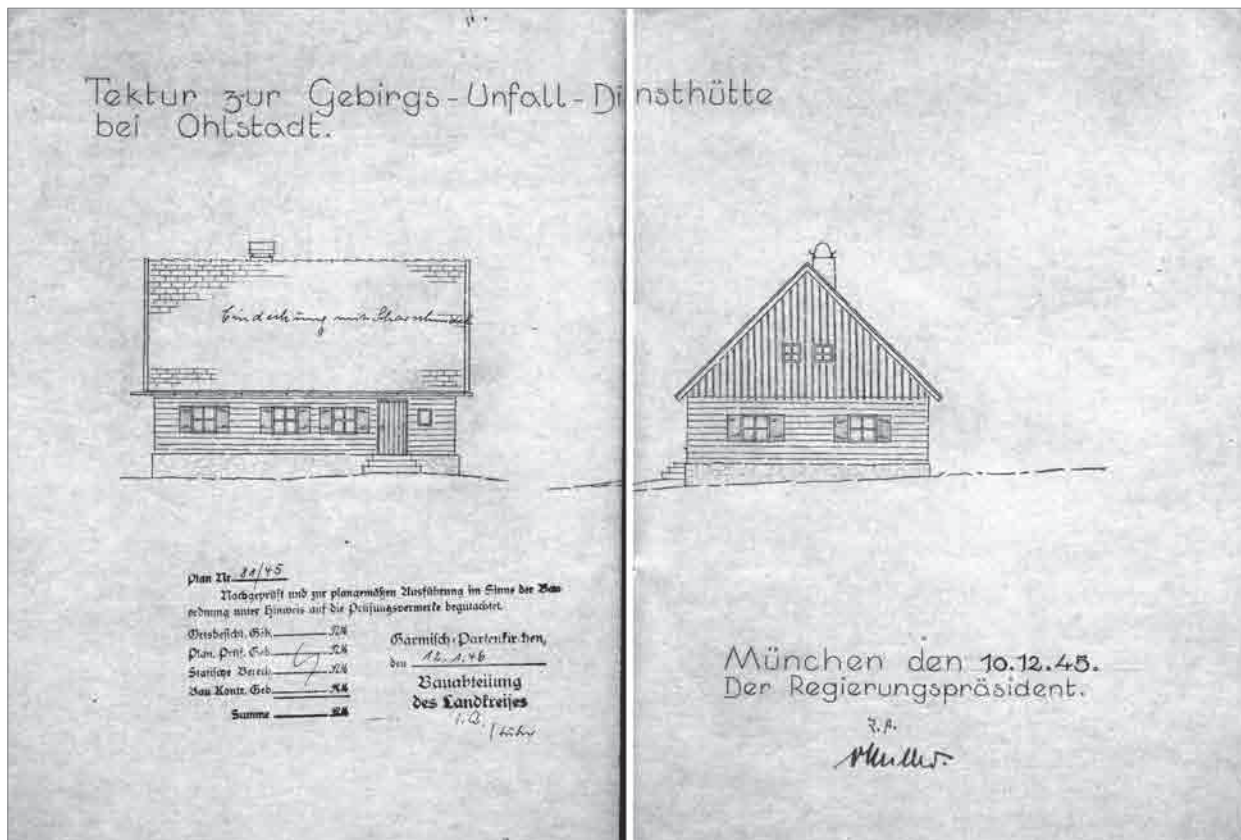 Tektur zur Gebirgs-Unfall-Diensthütte
bei Ohlstadt.
Eindeckung mit Scharschindel
Plan Nr. 81/45
Nachgeprüft und zur plangemäßen Ausführung im Sinne der Bau
ordnung unter Hinweis auf die Prüfungsvermerke begutachtet.
Ortsbesicht. Geb. RM
Plan. Prüf. Geb. RM
Statische Berech. RM
Bau Kontr. Geb. RM
Summe RM
Garmisch-Partenkirchen,
den 12.1.46
Bauabteilung
des Landkreises
München den 10.12.45.
Der Regierungspräsident.